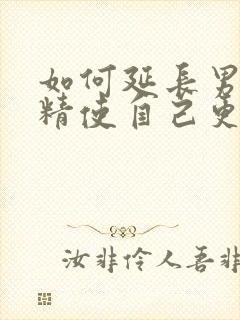 如何延長男
精使自己更
汝非伶人吾非